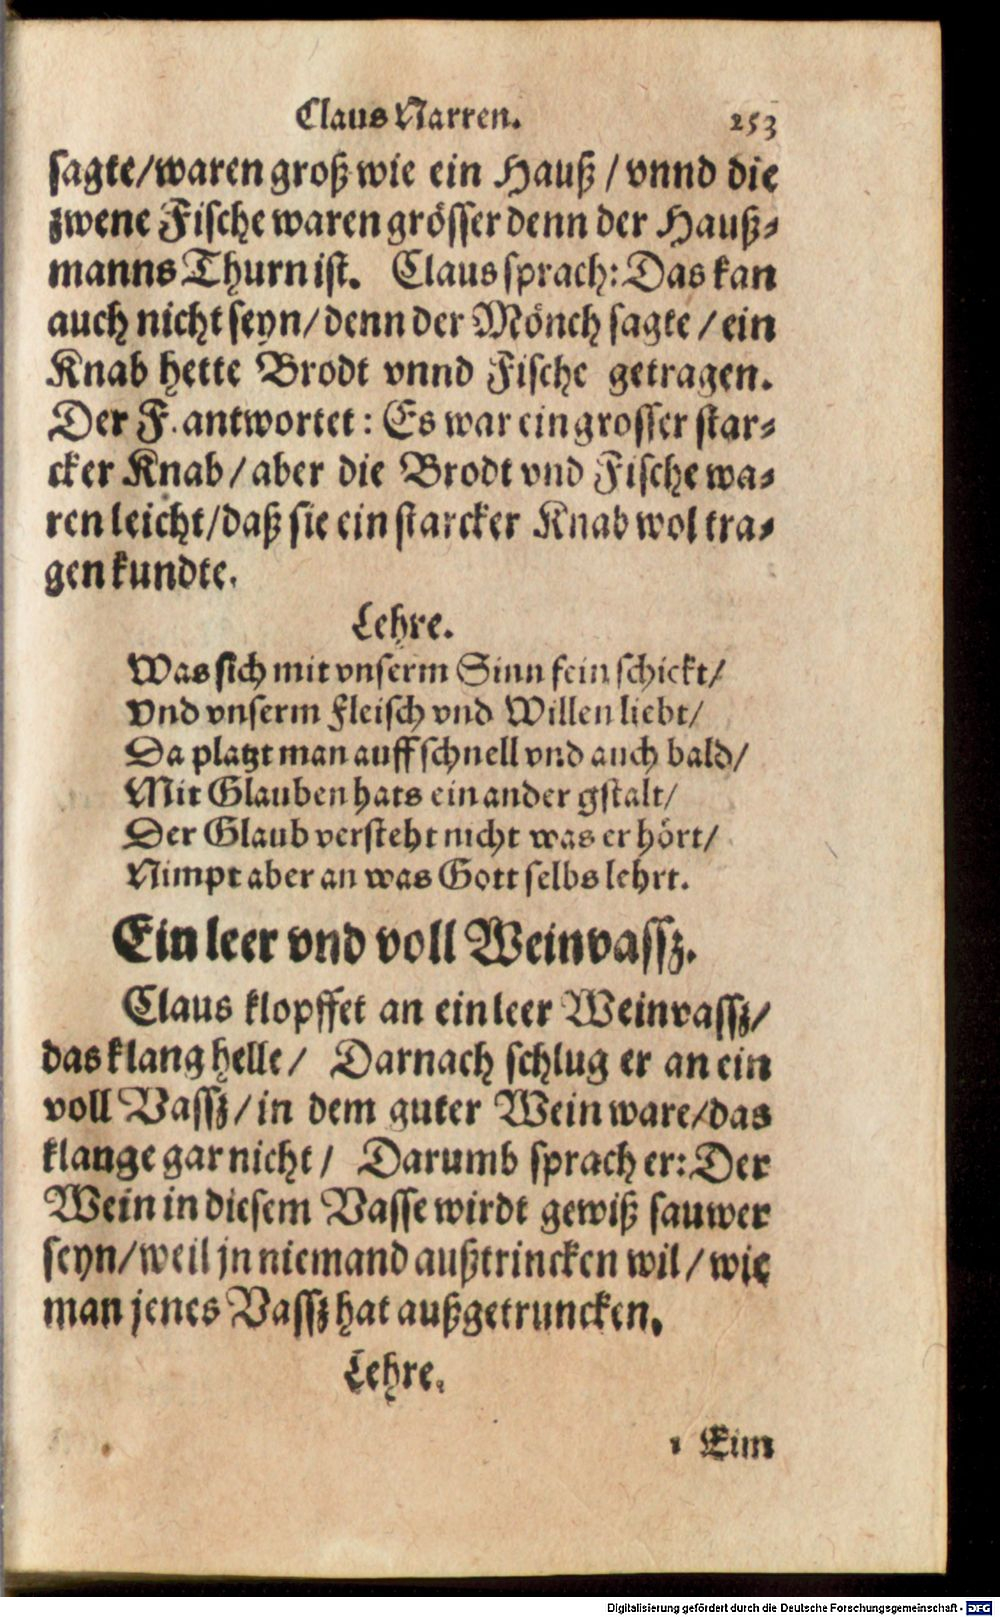 Claus Narren. 253
sagte/waren groß wie ein Hauß/vnnd die
zwene Fische waren grösser denn der Hauß-
manns Thurn ist. Claus sprach: Das kan
auch nicht seyn/denn der Mönch sagte/ein
Knab hette Brodt vnnd Fische getragen.
Der F. antwortet: Es war ein grosser star-
cker Knab/aber die Brodt vnd Fische wa-
ren leicht/daß sie ein starcker Knab wol tra-
gen kundte.
Lehre.
Was sich mit vnserm Sinn fein schickt/
Vnd vnserm Fleisch vnd Willen liebt/
Da platzt man auff schnell vnd auch bald/
Mit Glauben hats ein ander gstalt/
Der Glaub versteht nicht was er hört/
Nimpt aber an was Gott selbs lehrt.
Ein leer vnd voll Weinvassz.
Claus klopffet an ein leer Weinvassz/
das klang helle/ Darnach schlug er an ein
voll Vassz/in dem guter Wein ware/das
klange gar nicht/ Darumb sprach er: Der
Wein in diesem Vasse wirdt gewiß sauwer
seyn/weil jn niemand außtrincken wil/wie
man jenes Vassz hat außgetruncken.
Lehre.
Eim
Digitalisierung gefördert durch die Deutsche Forschungsgemeinschaft - DFG